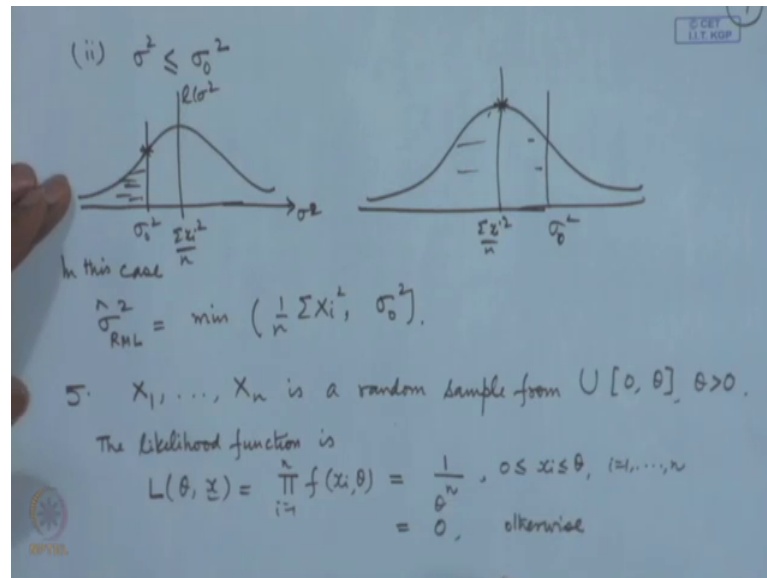 © CET
I.I.T. KGP
(ii) σ² ≤ σ₀²
l(σ²
σ₀² Σxi²/n → σ²
Σxi²/n σ₀²
In this case
σ̂²_RML = min ( 1/n ΣXi², σ₀² ).
5. X₁, ..., Xₙ is a random sample from U [0, θ], θ>0.
The likelihood function is
L(θ, x) = ∏ᵢ₌₁ⁿ f(xi, θ) = 1/θⁿ , 0 ≤ xi ≤ θ, i=1, ..., n
= 0, otherwise
NPTEL